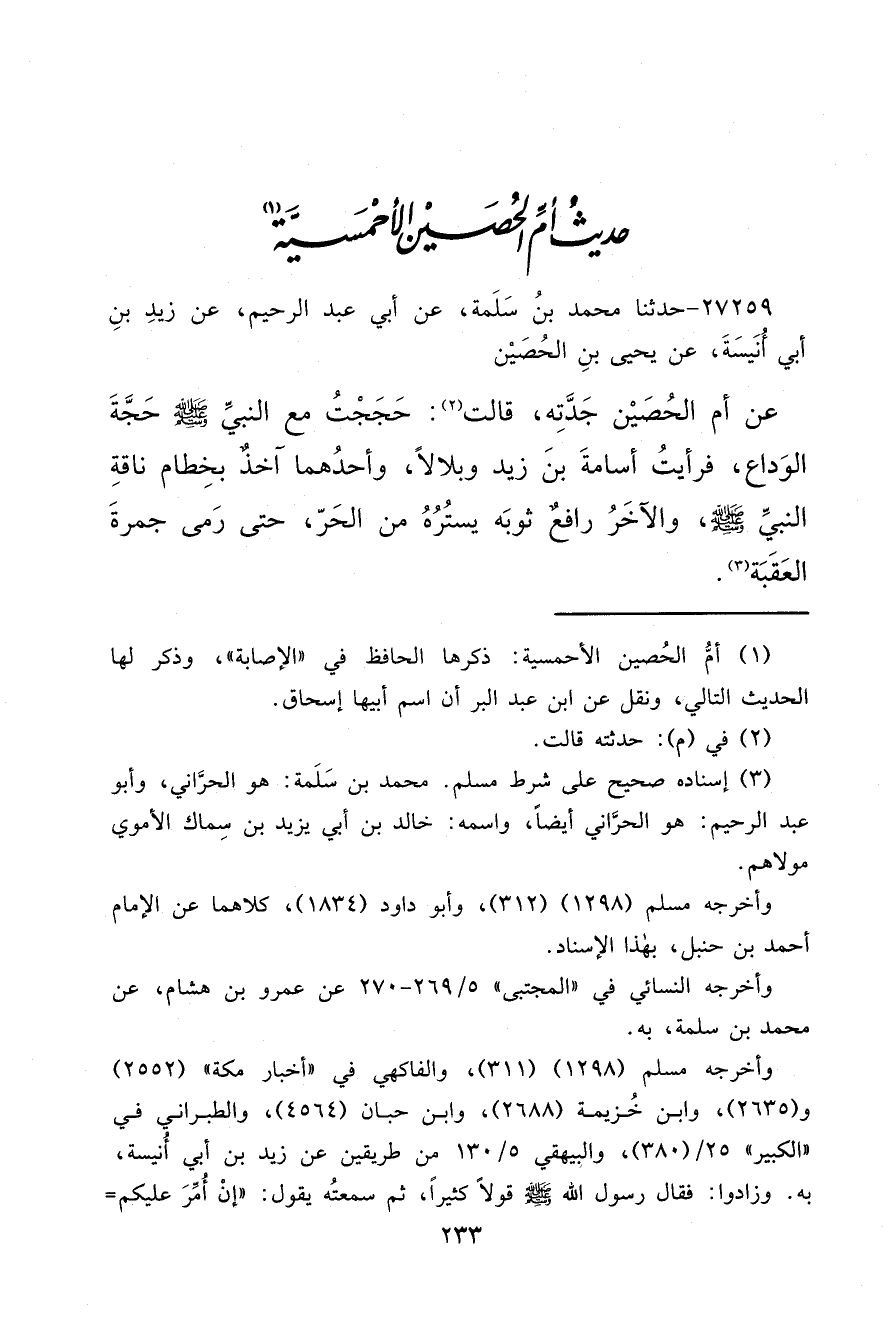 حديث أمِّ الحُصَيْن الأحْمَسيَّة(١)
٢٧٢٥٩-حدثنا محمد بنُ سَلَمة، عن أبي عبد الرحيم، عن زيدِ بنِ
أبي أُنَيسَةَ، عن يحيى بنِ الحُصَيْن
عن أم الحُصَيْن جَدَّتِه، قالت(٢): حَجَجْتُ مع النبيِّ ﷺ حَجَّةَ
الوَداع، فرأيتُ أسامةَ بنَ زيد وبلالاً، وأحدُهما آخذٌ بخِطام ناقةِ
النبيِّ ﷺ، والآخَرُ رافعٌ ثوبَه يستُرُهُ من الحَرّ، حتى رَمى جمرةَ
العَقَبَة(٣).
(١) أمُّ الحُصين الأحمسية: ذكرها الحافظ في «الإصابة»، وذكر لها
الحديث التالي، ونقل عن ابن عبد البر أن اسم أبيها إسحاق.
(٢) في (م): حدثته قالت.
(٣) إسناده صحيح على شرط مسلم. محمد بن سَلَمة: هو الحرَّاني، وأبو
عبد الرحيم: هو الحرَّاني أيضاً، واسمه: خالد بن أبي يزيد بن سِماك الأموي
مولاهم.
وأخرجه مسلم (١٢٩٨) (٣١٢)، وأبو داود (١٨٣٤)، كلاهما عن الإمام
أحمد بن حنبل، بهٰذا الإسناد.
وأخرجه النسائي في «المجتبى» ٢٦٩/٥-٢٧٠ عن عمرو بن هشام، عن
محمد بن سلمة، به.
وأخرجه مسلم (١٢٩٨) (٣١١)، والفاكهي في «أخبار مكة» (٢٥٥٢)
و(٢٦٣٥)، وابن خُزيمة (٢٦٨٨)، وابن حبان (٤٥٦٤)، والطبراني في
«الكبير» ٢٥/(٣٨٠)، والبيهقي ١٣٠/٥ من طريقين عن زيد بن أبي أُنيسة،
به. وزادوا: فقال رسول الله ﷺ قولاً كثيراً، ثم سمعتُه يقول: «إنْ أُمِّرَ عليكم=
٢٣٣